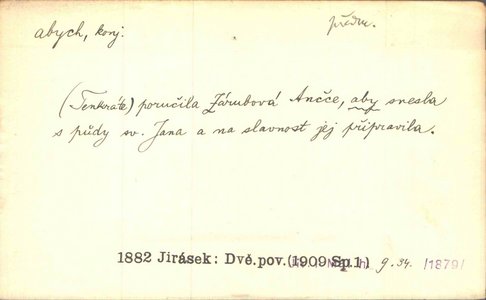 abych, konj. předm.
(Tenkráte) poručila Zárubová Ančce, aby snesla
s půdy sv. Jana a na slavnost jej připravila.
1882 Jirásek: Dvě.pov.(1909 Sp.1) 9.34. /1879/